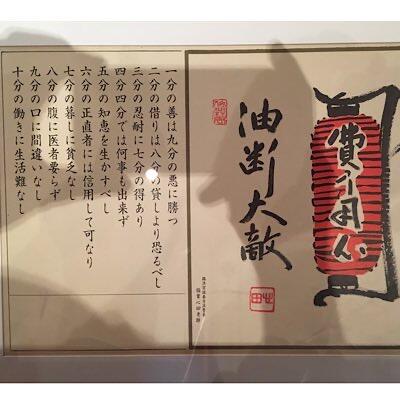 費用心
油断大敵
稲葉心田老師
一分の善は九分の悪に勝つ
二分の借りは八分の貸しより恐るべし
三分の忍耐に七分の得あり
四分四分では何事も出来ず
五分の知恵を生かすべし
六分の正直者には信用して可なり
七分の暮しに貧乏なし
八分の腹に医者要らず
九分の口に間違いなし
十分の働きに生活難なし